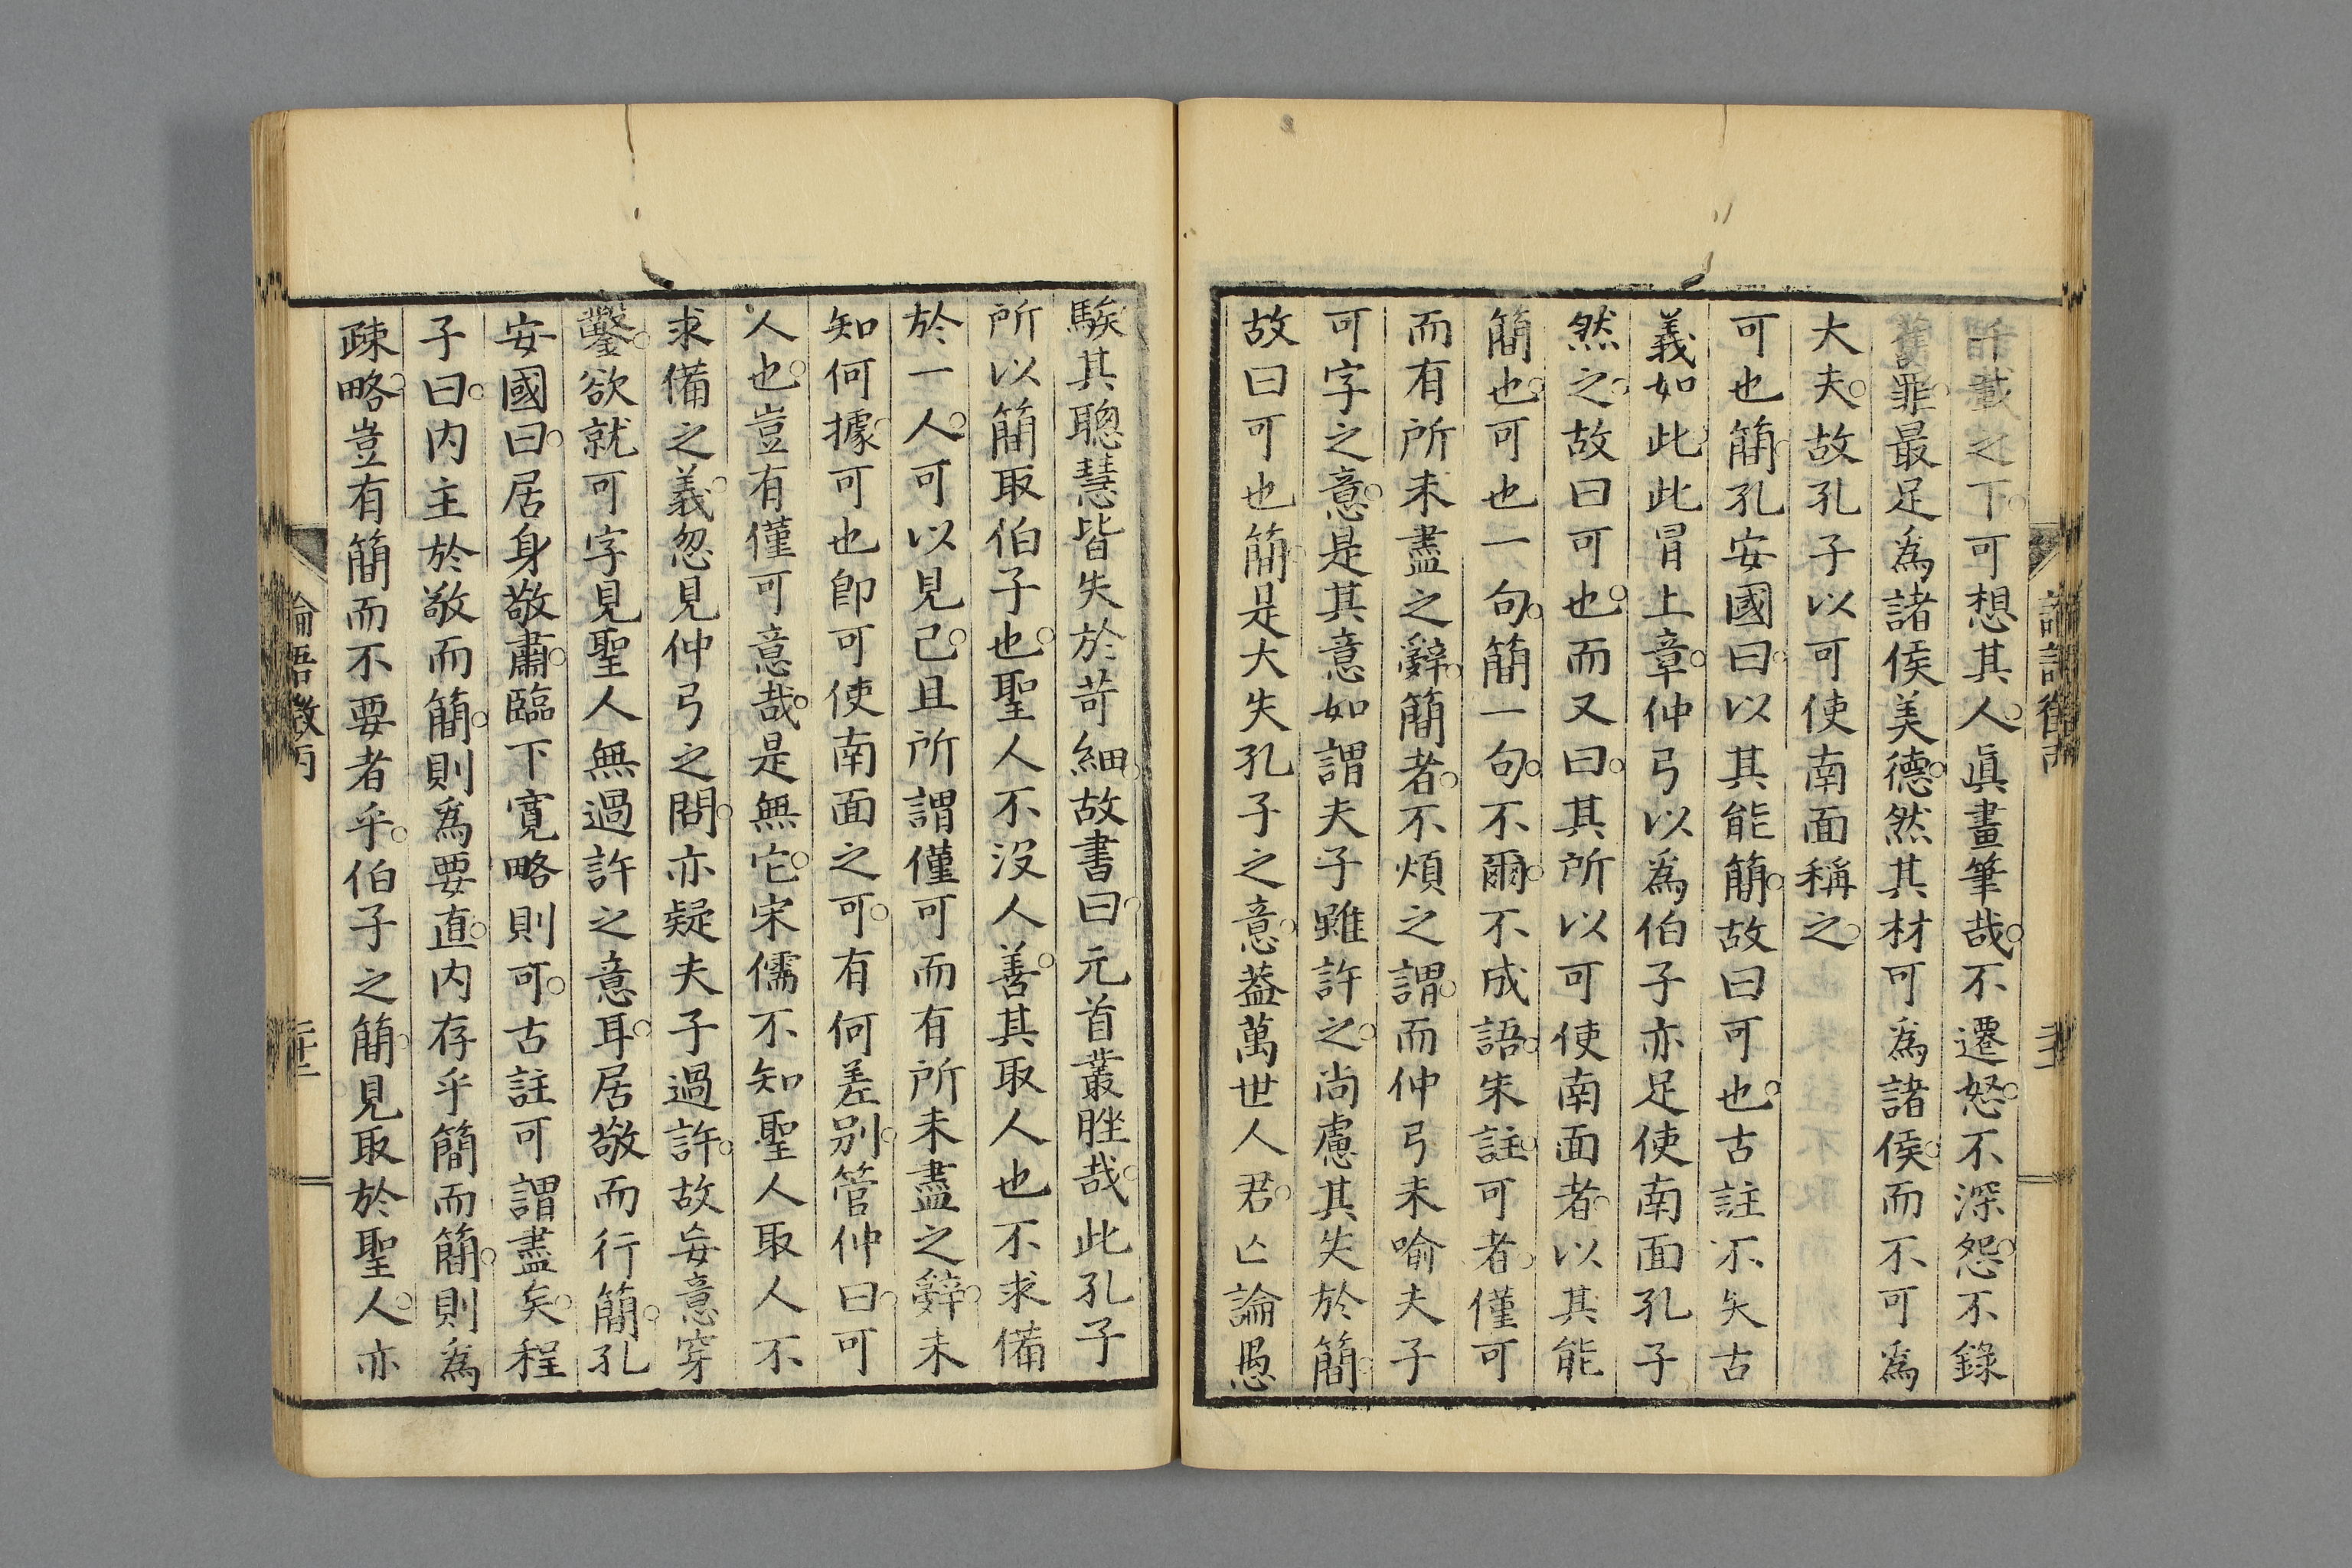 之下可想其人眞畫筆哉不遷怒不深怨不錄
舊罪最足爲諸侯美德然其材可爲諸侯而不可爲
大夫故孔子以可使南面稱之
可也簡孔安國曰以其能簡故曰可也古註不失古
義如此此冒上章仲弓以爲伯子亦足使南面孔子
然之故曰可也而又曰其所以可使南面者以其能
簡也可也一句簡一句不爾不成語朱註可者僅可
而有所未盡之辭簡者不煩之謂而仲弓未喻夫子
可字之意是其意如謂夫子雖許之尚慮其失於簡
故曰可也簡是大失孔子之意葢萬世人君亾論愚
騃其聰慧皆失於苛細故書曰元首叢脞哉此孔子
所以簡取伯子也聖人不沒人善其取人也不求備
於一人可以見已且所謂僅可而有所未盡之辭未
知何據可也卽可使南面之可有何差別管仲曰可
人也豈有僅可意哉是無它宋儒不知聖人取人不
求備之義忽見仲弓之問亦疑夫子過許故妄意穿
鑿欲就可字見聖人無過許之意耳居敬而行簡孔
安國曰居身敬肅臨下寬略則可古註可謂盡矣程
子曰内主於敬而簡則爲要直内存乎簡而簡則爲
疎略豈有簡而不要者乎伯子之簡見取於聖人亦
論語徵丙